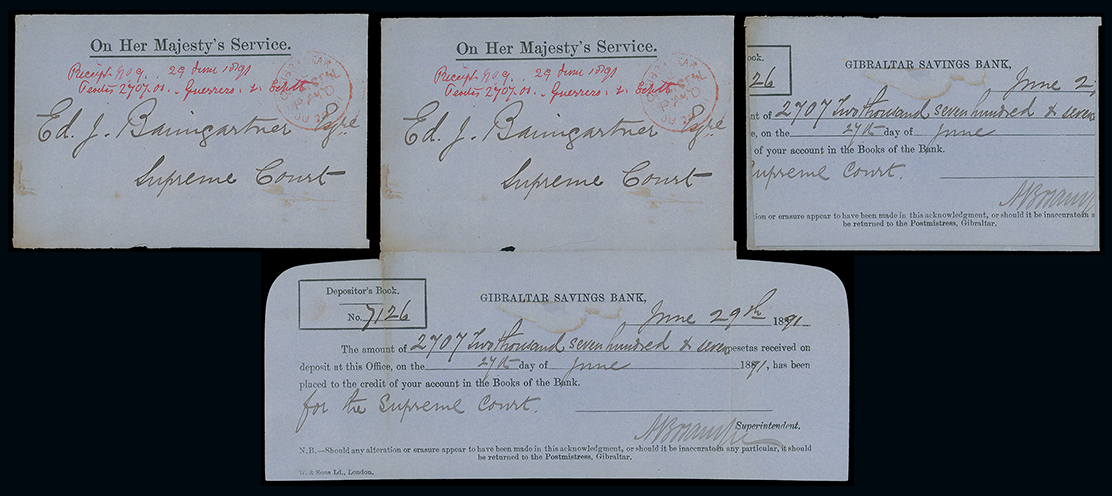 On Her Majesty's Service.
Receipt No 9. 29 June 1891
Pesetas 2707.00. Guerrero
Ed. J. Baumgartner Esqre.
Supreme Court
On Her Majesty's Service.
Receipt No 9. 29 June 1891
Pesetas 2707.00. Guerrero
Ed. J. Baumgartner Esqre.
Supreme Court
26
GIBRALTAR SAVINGS BANK,
June 2
nt of 2707 Two thousand seven hundred & seven
e, on the 27th day of June
of your account in the Books of the Bank.
upreme Court.
ion or erasure appear to have been made in this acknowledgment, or should it be inaccurate in a
be returned to the Postmistress, Gibraltar.
Depositor's Book.
No. 7126
GIBRALTAR SAVINGS BANK,
June 29th 1891
The amount of 2707 Two thousand seven hundred & seven pesetas received on
deposit at this Office, on the 27th day of June 1891, has been
placed to the credit of your account in the Books of the Bank.
for the Supreme Court.
Superintendent.
N.B.—Should any alteration or erasure appear to have been made in this acknowledgment, or should it be inaccurate in any particular, it should
be returned to the Postmistress, Gibraltar.
W. & Sons Ld., London.